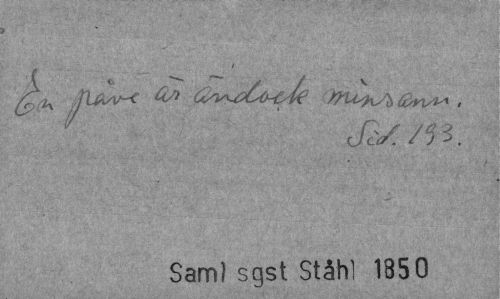 En påve är ändock minsann.
Sid. 193.
Saml sgst Ståhl 1850